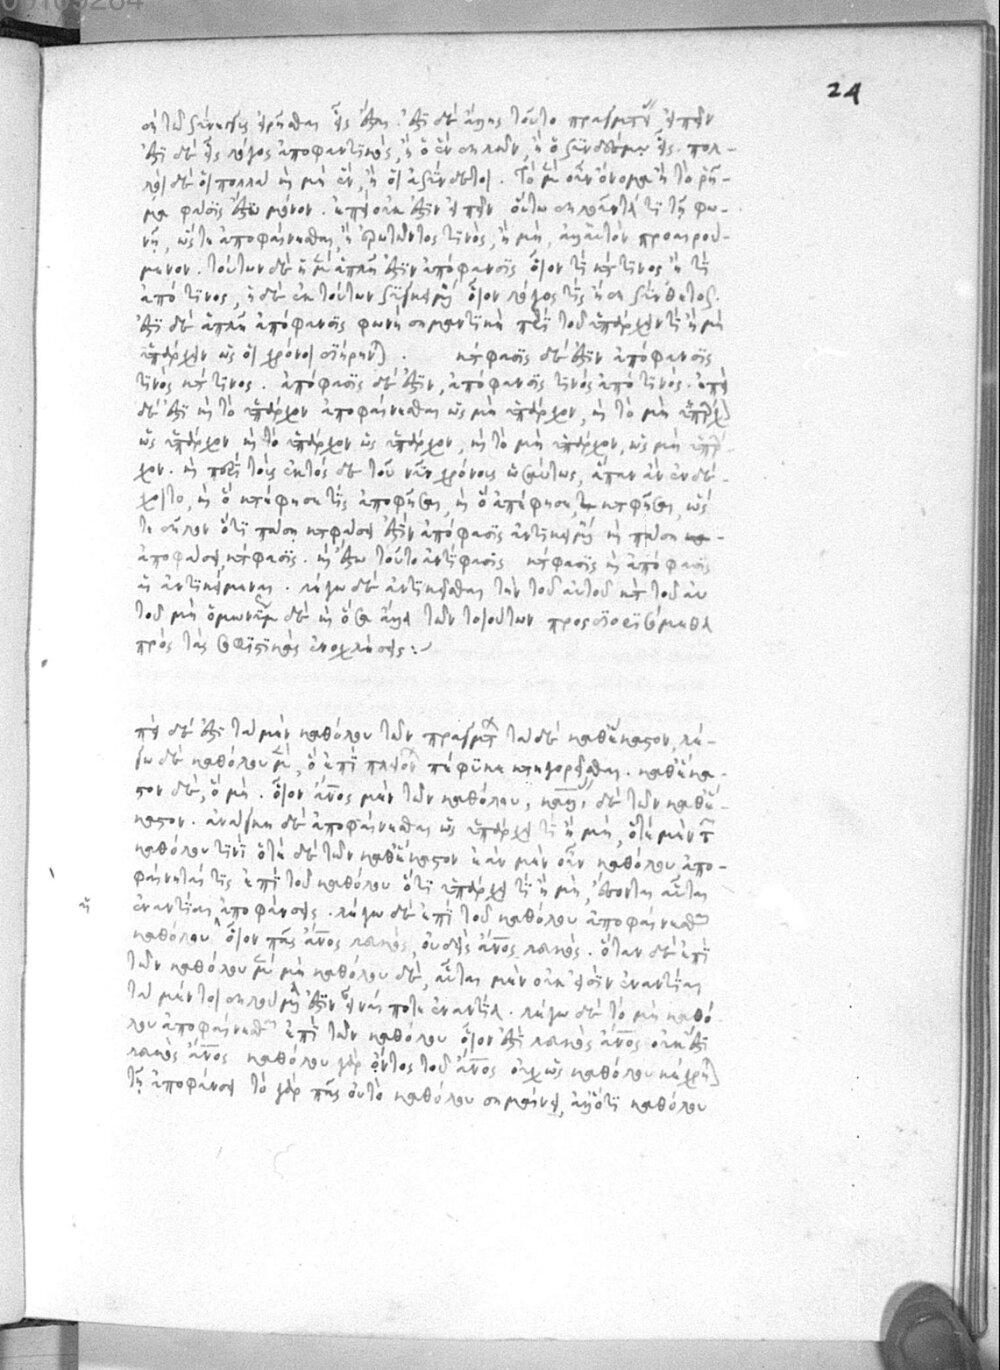 24
ση τῶ σύνεγγυς εἰρῆσθαι εἷς ἔσται. ἔστι δὲ ἄλλης τοῦτο πραγματείας εἰπεῖν
ἔστι δὲ εἷς λόγος ἀποφαντικὸς, ἢ ὁ ἓν δηλῶν, ἢ ὁ συνδέσμω εἷς. πολ-
λοὶ δὲ οἱ πολλὰ καὶ μὴ ἓν, ἢ οἱ ἀσύνδετοι. Τὸ μὲν οὖν ὄνομα ἢ τὸ ῥῆ-
μα φάσις ἔστω μόνον. ἐπεὶ οὐκ ἔστιν εἰπεῖν οὕτω δηλοῦντά τι τῇ φω-
νῇ, ὥστε ἀποφαίνεσθαι, ἢ ἐρωτῶντος τινὸς, ἢ μὴ, ἀλλ' αὐτὸν προαιρού-
μενον. τούτων δὲ ἡ μὲν ἁπλῆ ἐστὶν ἀπόφανσις οἷον τὶ κατὰ τινος ἢ τὶ
ἀπό τινος, ἡ δὲ ἐκ τούτων συγκειμένη οἷον λόγος τὶς ἤδη σύνθετος.
ἔστι δὲ ἁπλῆ ἀπόφανσις φωνὴ σημαντικὴ περὶ τοῦ ὑπάρχειν τι ἢ μὴ
ὑπάρχειν ὡς οἱ χρόνοι διῄρηνται. κατάφασις δέ ἐστιν ἀπόφανσις
τινὸς κατὰ τινος. ἀπόφασις δέ ἐστιν, ἀπόφανσις τινὸς ἀπό τινος. ἐπεὶ
δὲ ἔστι καὶ τὸ ὑπάρχον ἀποφαίνεσθαι ὡς μὴ ὑπάρχον, καὶ τὸ μὴ ὑπάρχον
ὡς ὑπάρχον καὶ τὸ ὑπάρχον ὡς ὑπάρχον, καὶ τὸ μὴ ὑπάρχον, ὡς μὴ ὑπάρ-
χον. καὶ περὶ τοὺς ἐκτὸς δὲ τοῦ νῦν χρόνους ὡσαύτως, ἅπαν ἂν ἐνδέ-
χοιτο, καὶ ὃ κατέφησε τὶς ἀποφῆσαι, καὶ ὃ ἀπέφησε, καταφῆσαι, ὥσ-
τε δῆλον ὅτι πάση καταφάσει ἐστὶν ἀπόφασις ἀντικειμένη καὶ πάση
ἀποφάσει κατάφασις. καὶ ἔστω τοῦτο ἀντίφασις κατάφασις καὶ ἀπόφασις
αἱ ἀντικείμεναι. λέγω δὲ ἀντικεῖσθαι τὴν τοῦ αὐτοῦ κατὰ τοῦ αὐ
τοῦ μὴ ὁμωνύμως δὲ καὶ ὅσα ἄλλα τῶν τοιούτων προσδιοριζόμεθα
πρὸς τὰς σοφιστικὰς ἐνοχλήσεις:
ἐπεὶ δέ ἐστι τὰ μὲν καθόλου τῶν πραγμάτων τὰ δὲ καθέκαστον, λέ-
γω δὲ καθόλου μὲν, ὃ ἐπὶ πλειόνων πέφυκε κατηγορεῖσθαι. καθέκα-
στον δὲ, ὃ μή. οἷον ἄνος μὲν τῶν καθόλου, καλλίας δὲ τῶν καθέ-
καστον. ἀνάγκη δὲ ἀποφαίνεσθαι ὡς ὑπάρχει τι ἢ μὴ, ὁτὲ μὲν τῶν
καθόλου τινὶ ὁτὲ δὲ τῶν καθέκαστον ἐὰν μὲν οὖν καθόλου ἀπο-
φαίνηταί τις ἐπὶ τοῦ καθόλου ὅτι ὑπάρχει τι ἢ μὴ, ἔσονται αὗται
ἐναντίαι ἀποφάνσεις. λέγω δὲ ἐπὶ τοῦ καθόλου ἀποφαίνεσθαι
καθόλου οἷον πᾶς ἄνος λευκὸς, οὐδεὶς ἄνος λευκός. ὅταν δὲ ἐπὶ
τῶν καθόλου μὲν μὴ καθόλου δὲ, αὗται μὲν οὐκ εἰσὶν ἐναντίαι
τὰ μέντοι δηλούμενα ἔστιν εἶναί ποτε ἐναντία. λέγω δὲ τὸ μὴ καθό
λου ἀποφαίνεσθαι ἐπὶ τῶν καθόλου οἷον ἔστι λευκὸς ἄνος οὐκ ἔστι
λευκὸς ἄνος καθόλου γὰρ ὄντος τοῦ ἄνος οὐχ ὡς καθόλου κέχρηται
τῇ ἀποφάνσει τὸ γὰρ πᾶς οὐ τὸ καθόλου σημαίνει, ἀλλ' ὅτι καθόλου